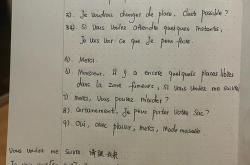 2). Je voudrais changer de place. C'est possible ?
3). Si vous voulez attendre quelques instants,
Je vais voir ce que Je peux faire.
4) Merci.
5) Monsieur. Il y a encore quelques places libres
dans la zone fumeurs, si vous voulez me suivre
7) merci, Vous pouvez m'aider ?
8) Certainement, Je peux porter votre sac ?
9) Oui, avec plaisir, merci, Mademoiselle
Vous voulez me suivre 请跟我来